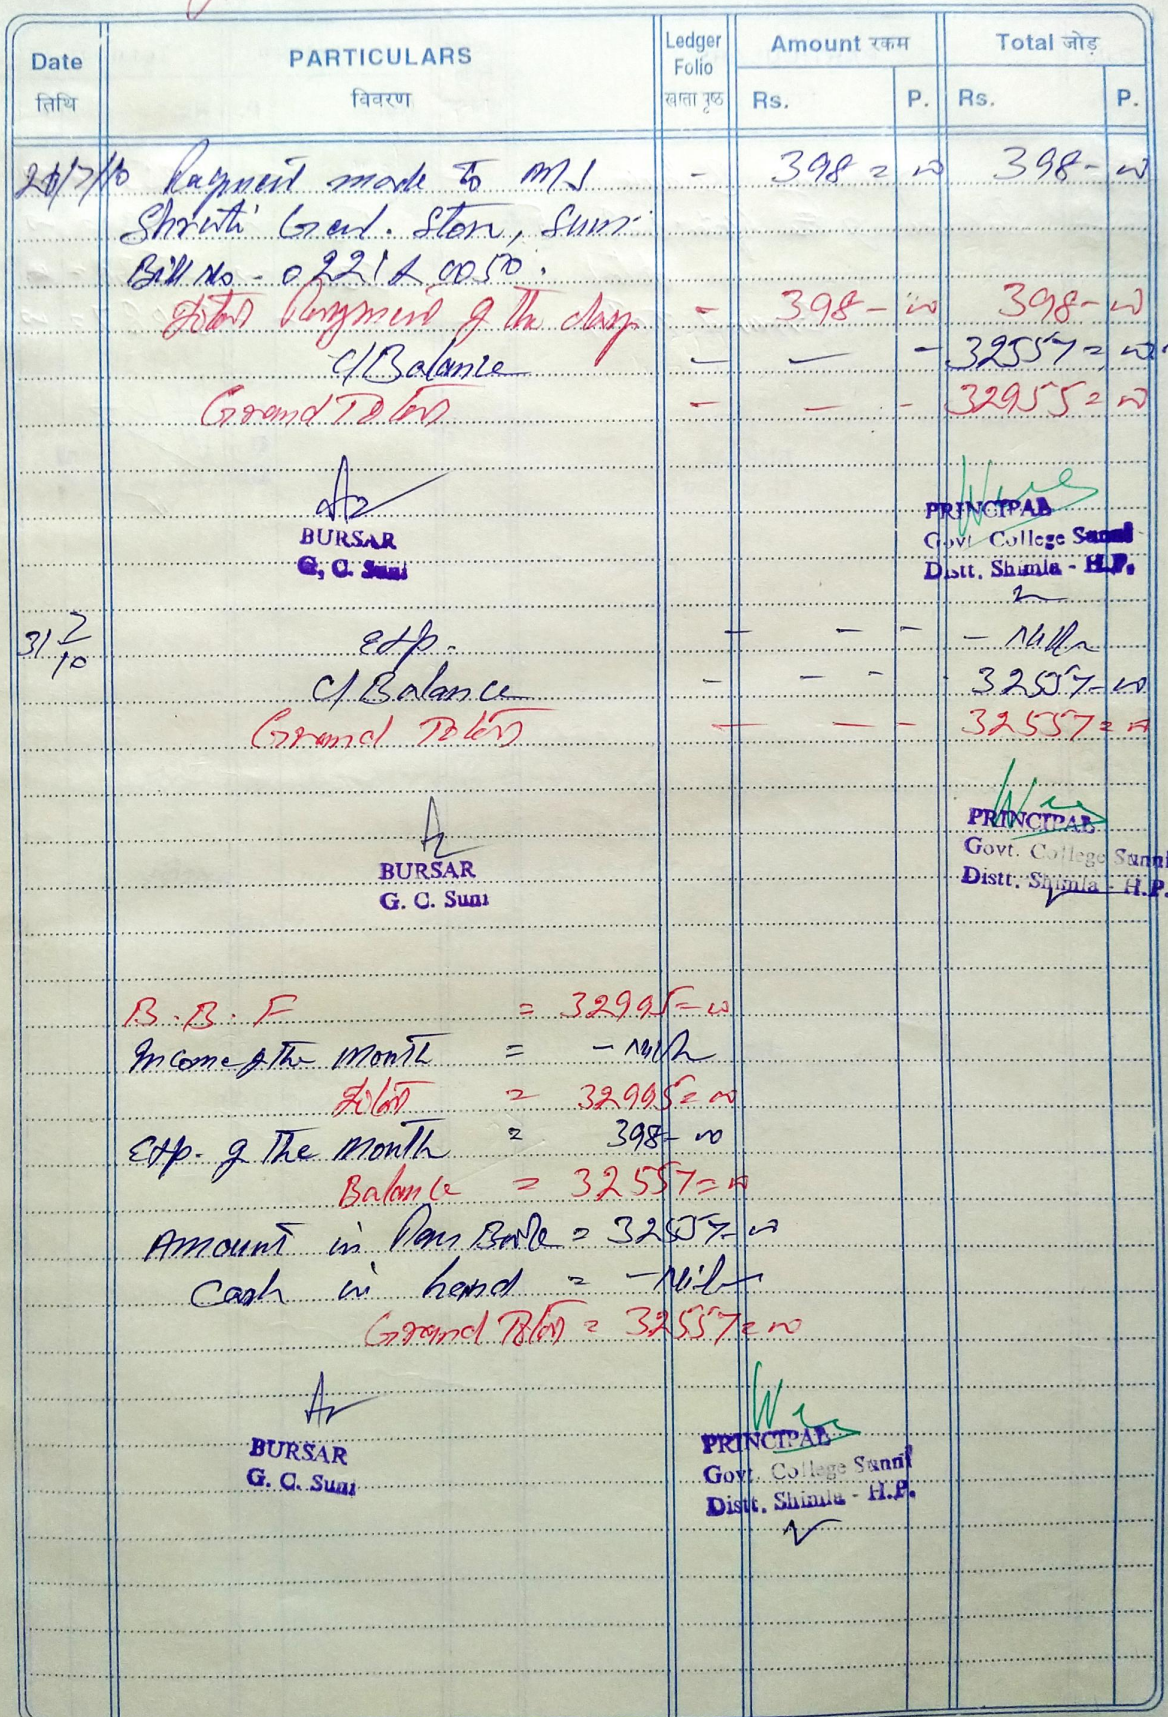 Date PARTICULARS Ledger Folio Amount रकम Total जोड़
तिथि विवरण खाता पृष्ठ Rs. P. Rs. P.
Payment made to M/S - 398 = 00 398 - 00
Shruti Genl. Store, Suni
Bill No - 0221 & 0050.
Total Payment of the day - 398 - 00 398 - 00
C/Balance - - - 32557 = 00
Grand Total - - - 32955 = 00
BURSAR
G, C. Suni
PRINCIPAL
Govt. College Sunni
Distt. Shimla - H.P.
31/7/10 Exp. - - - - Nil
C/Balance - - - - 32557 - 00
Grand Total - - - 32557 = 00
BURSAR
G. C. Suni
PRINCIPAL
Govt. College Sunni
Distt. Shimla - H.P.
B.B.F = 32995 = 00
Income of the Month = - Nil
Total = 32995 = 00
Exp. of the Month = 398 - 00
Balance = 32557 = 00
Amount in Pass Book = 32557 - 00
Cash in hand = - Nil -
Grand Total = 32557 = 00
BURSAR
G. C. Suni
PRINCIPAL
Govt. College Sunni
Distt. Shimla - H.P.